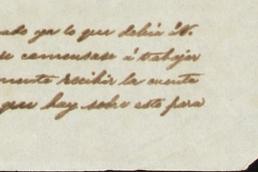 ado ya lo que debia á N.
se comensase á trabajar
mente recibir la cuenta
que hay sobre este para